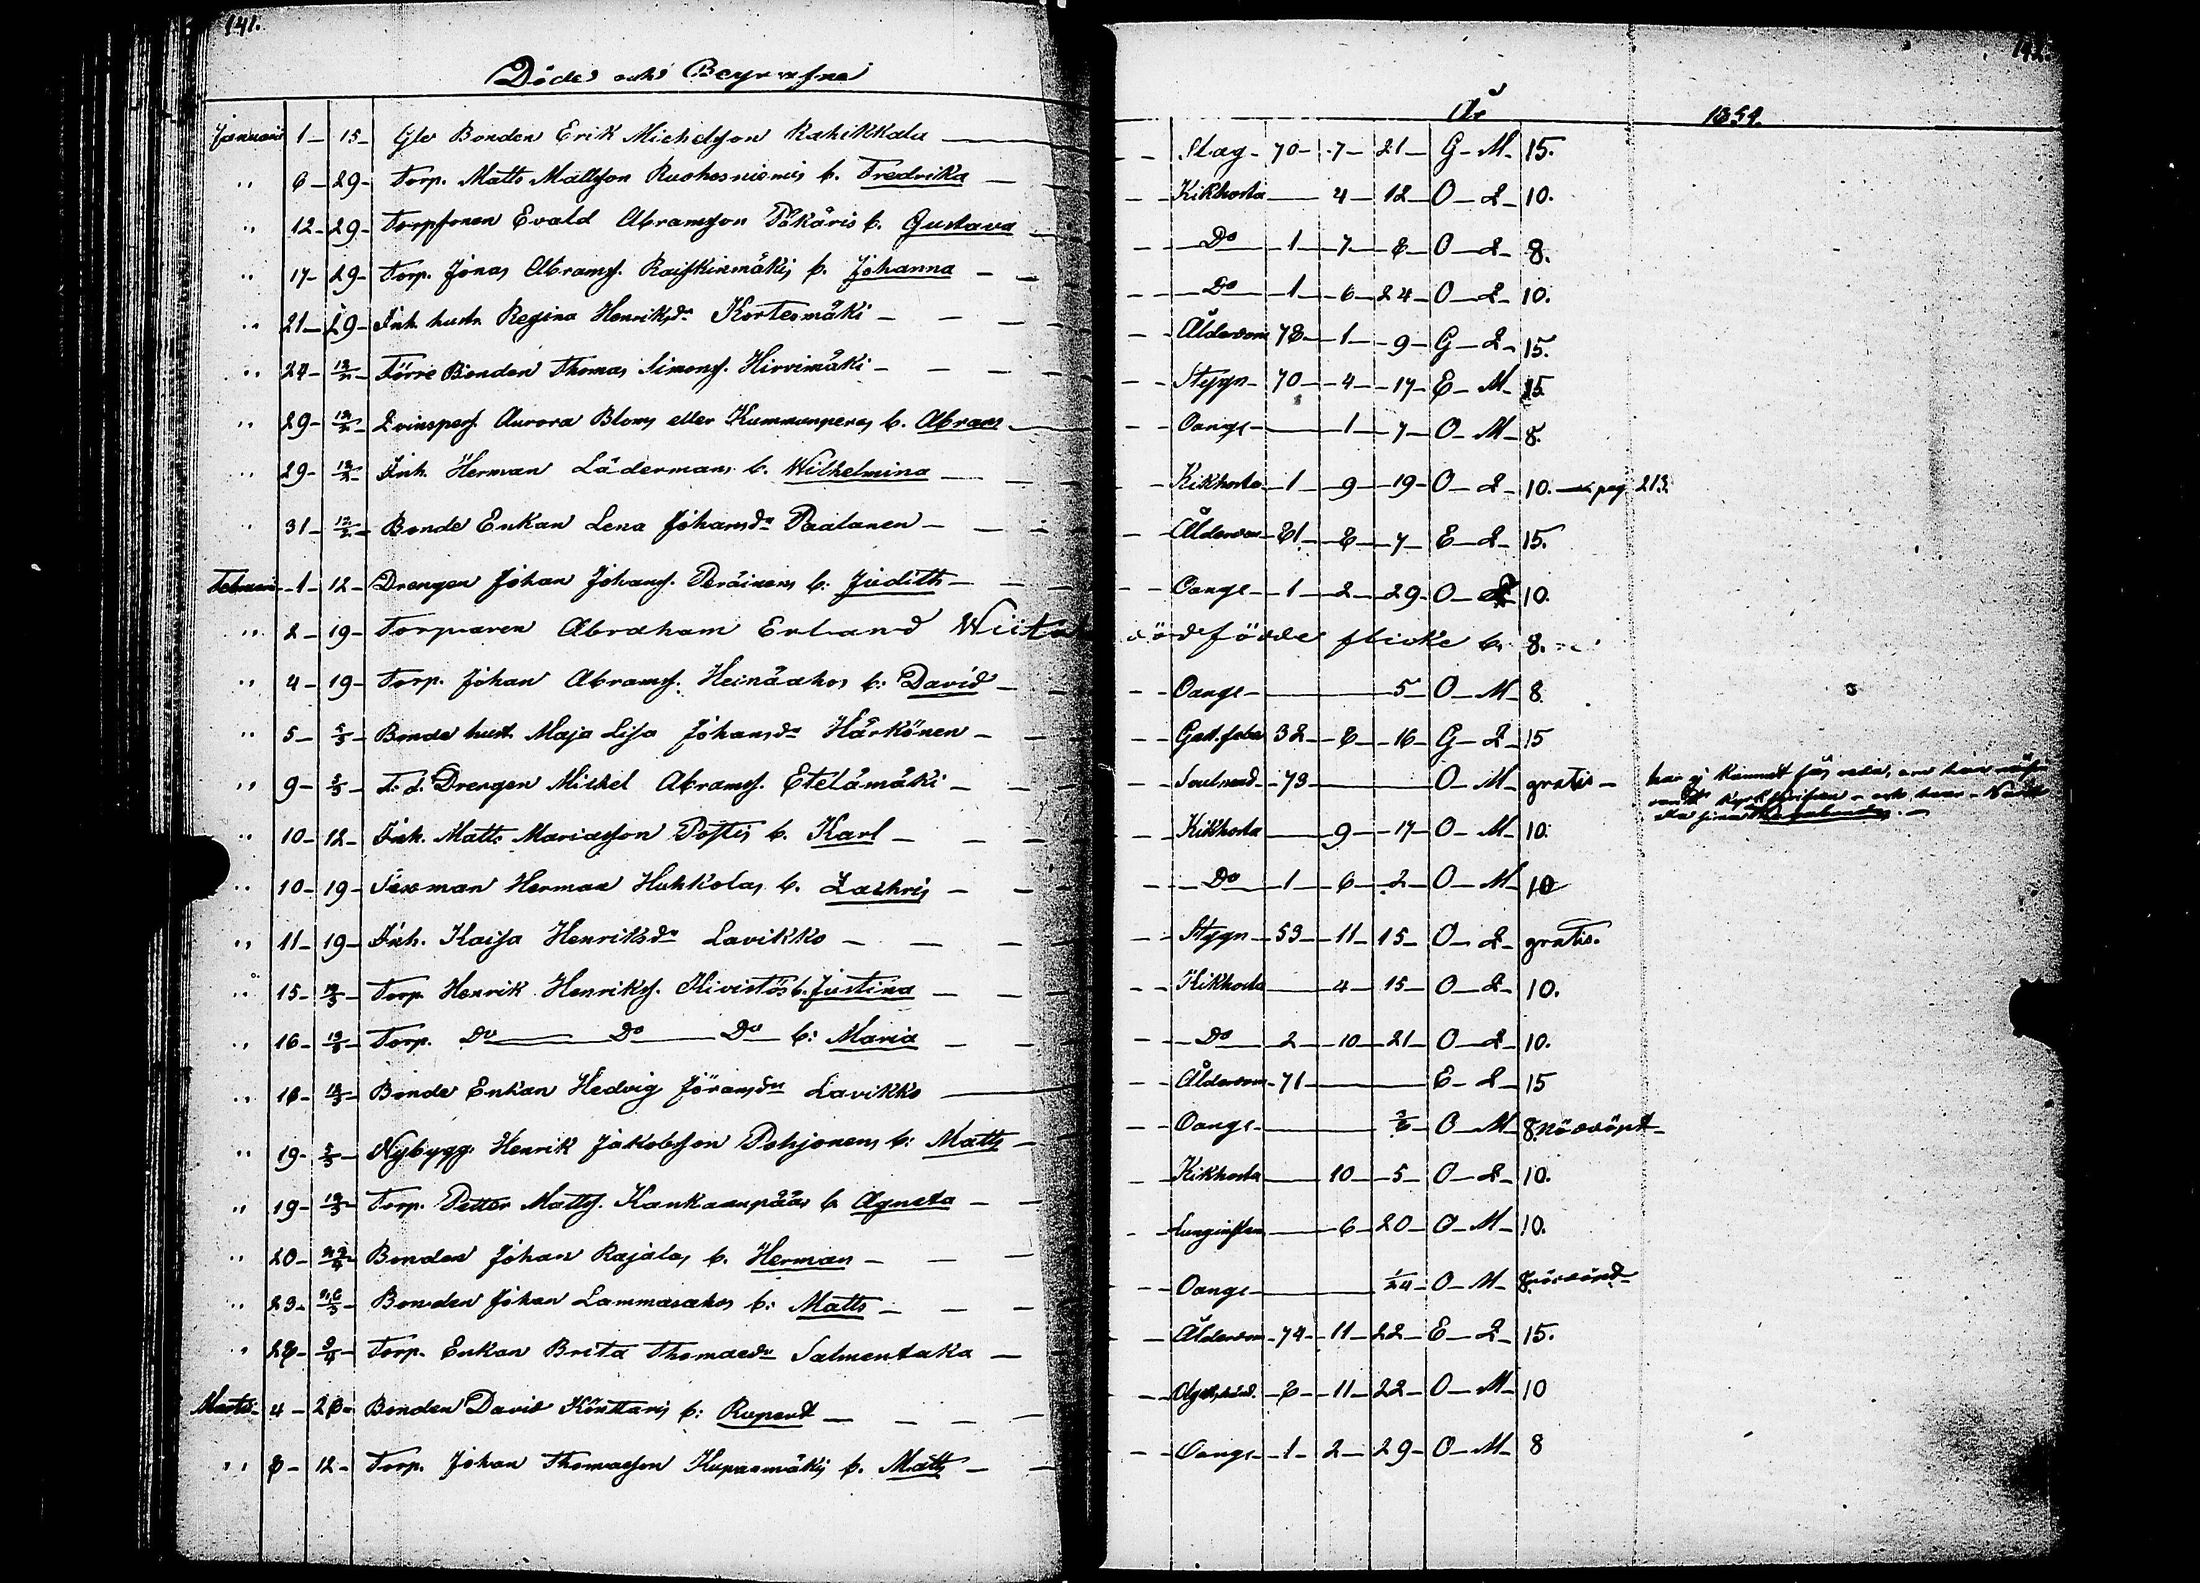 141.
Döde och Begrafne
År 1854.
Januari 1 15 Gle Bonden Erik Michelsson Kahikkala Slag 70 7 21 G M 15.
" 6 29 Torp. Matts Mattsson Ruohosniemis b. Fredrika Kikhosta 4 12 O Q 10.
" 12 29 Torpsonen Evald Abramsson Päkäris b. Gustava Do 1 7 8 O Q 8.
" 17 29 Torp. Jonas Abramss. Raiskinmäkis b. Johanna Do 1 6 24 O Q 10.
" 21 29 Inh. hustr. Regina Henriksdr Kortesmäki Ålderdom 78 1 9 G Q 15.
" 24 12/2 Förre Bonden Thomas Simonss. Hirvimäki Stygn 70 4 17 E M 15
" 29 12/2 Qvinspers. Aurora Bloms eller Kummunperäs b. Abram Oange 1 7 O M 8.
" 29 12/2 Inh. Herman Lädermans b. Wilhelmina Kikhosta 1 9 19 O Q 10. pag 213.
" 31 12/2 Bonde Enkan Lena Johansdr Paalanen Ålderdom 81 8 7 E Q 15.
Februari 1 12 Drengen Johan Johanss. Peräinens b. Judith Oange 1 2 29 O Q 10.
" 2 19 Torparen Abraham Erland dödfödde flicke b. 8.
" 4 19 Torp. Johan Abramss. Heinäahos b. David Oange 5 O M 8.
" 5 5/3 Bonde hust. Maja Lisa Johansdr Härkönen 32 8 16 G Q 15
" 9 5/3 F. d. Drengen Michel Abramss. Etelämäki 73 O M gratis har ej kunnat fås reda, om han
" 10 12 Inh. Matts Mariasson Postis b. Karl Kikhosta 9 17 O M 10.
" 10 19 Sexman Herman Huhkolas b. Zachris Do 1 6 2 O M 10
" 11 19 Inh. Kaisa Henriksdr Lavikko Stygn 53 11 15 O Q gratis.
" 15 19/3 Torp. Henrik Henrikss. Kivistös b. Justina Kikhosta 4 15 O Q 10.
" 16 19/3 Torp. Do Do Do b: Maria Do 2 10 21 O Q 10.
" 18 19/3 Bonde Enkan Hedvig Jöransdr Lavikko Ålderdom 71 E Q 15
" 19 5/3 Nybygg. Henrik Jakobsson Pohjonens b: Matts Oange O M 8 nöddöpt
" 19 19/3 Torp. Petter Mattss. Kankaanpääs b. Agneta Kikhosta 10 5 O Q 10.
" 20 Bonden Johan Rajalas b. Herman 6 20 O M 10.
" 23 26/3 Bonden Johan Lammasahos b: Matts Oange 1/24 O M 8.
" 28 2/4 Torp. Enkan Brita Thomaedr Salmentaka Ålderdom 74 11 22 E Q 15.
Martii 4 Bonden David Könttaris b: Rupert Olyckshänd. 8 11 22 O M 10
" 8 12 Torp. Johan Thomasson Hupasmäkis b. Matts Oange 1 2 29 O M 8